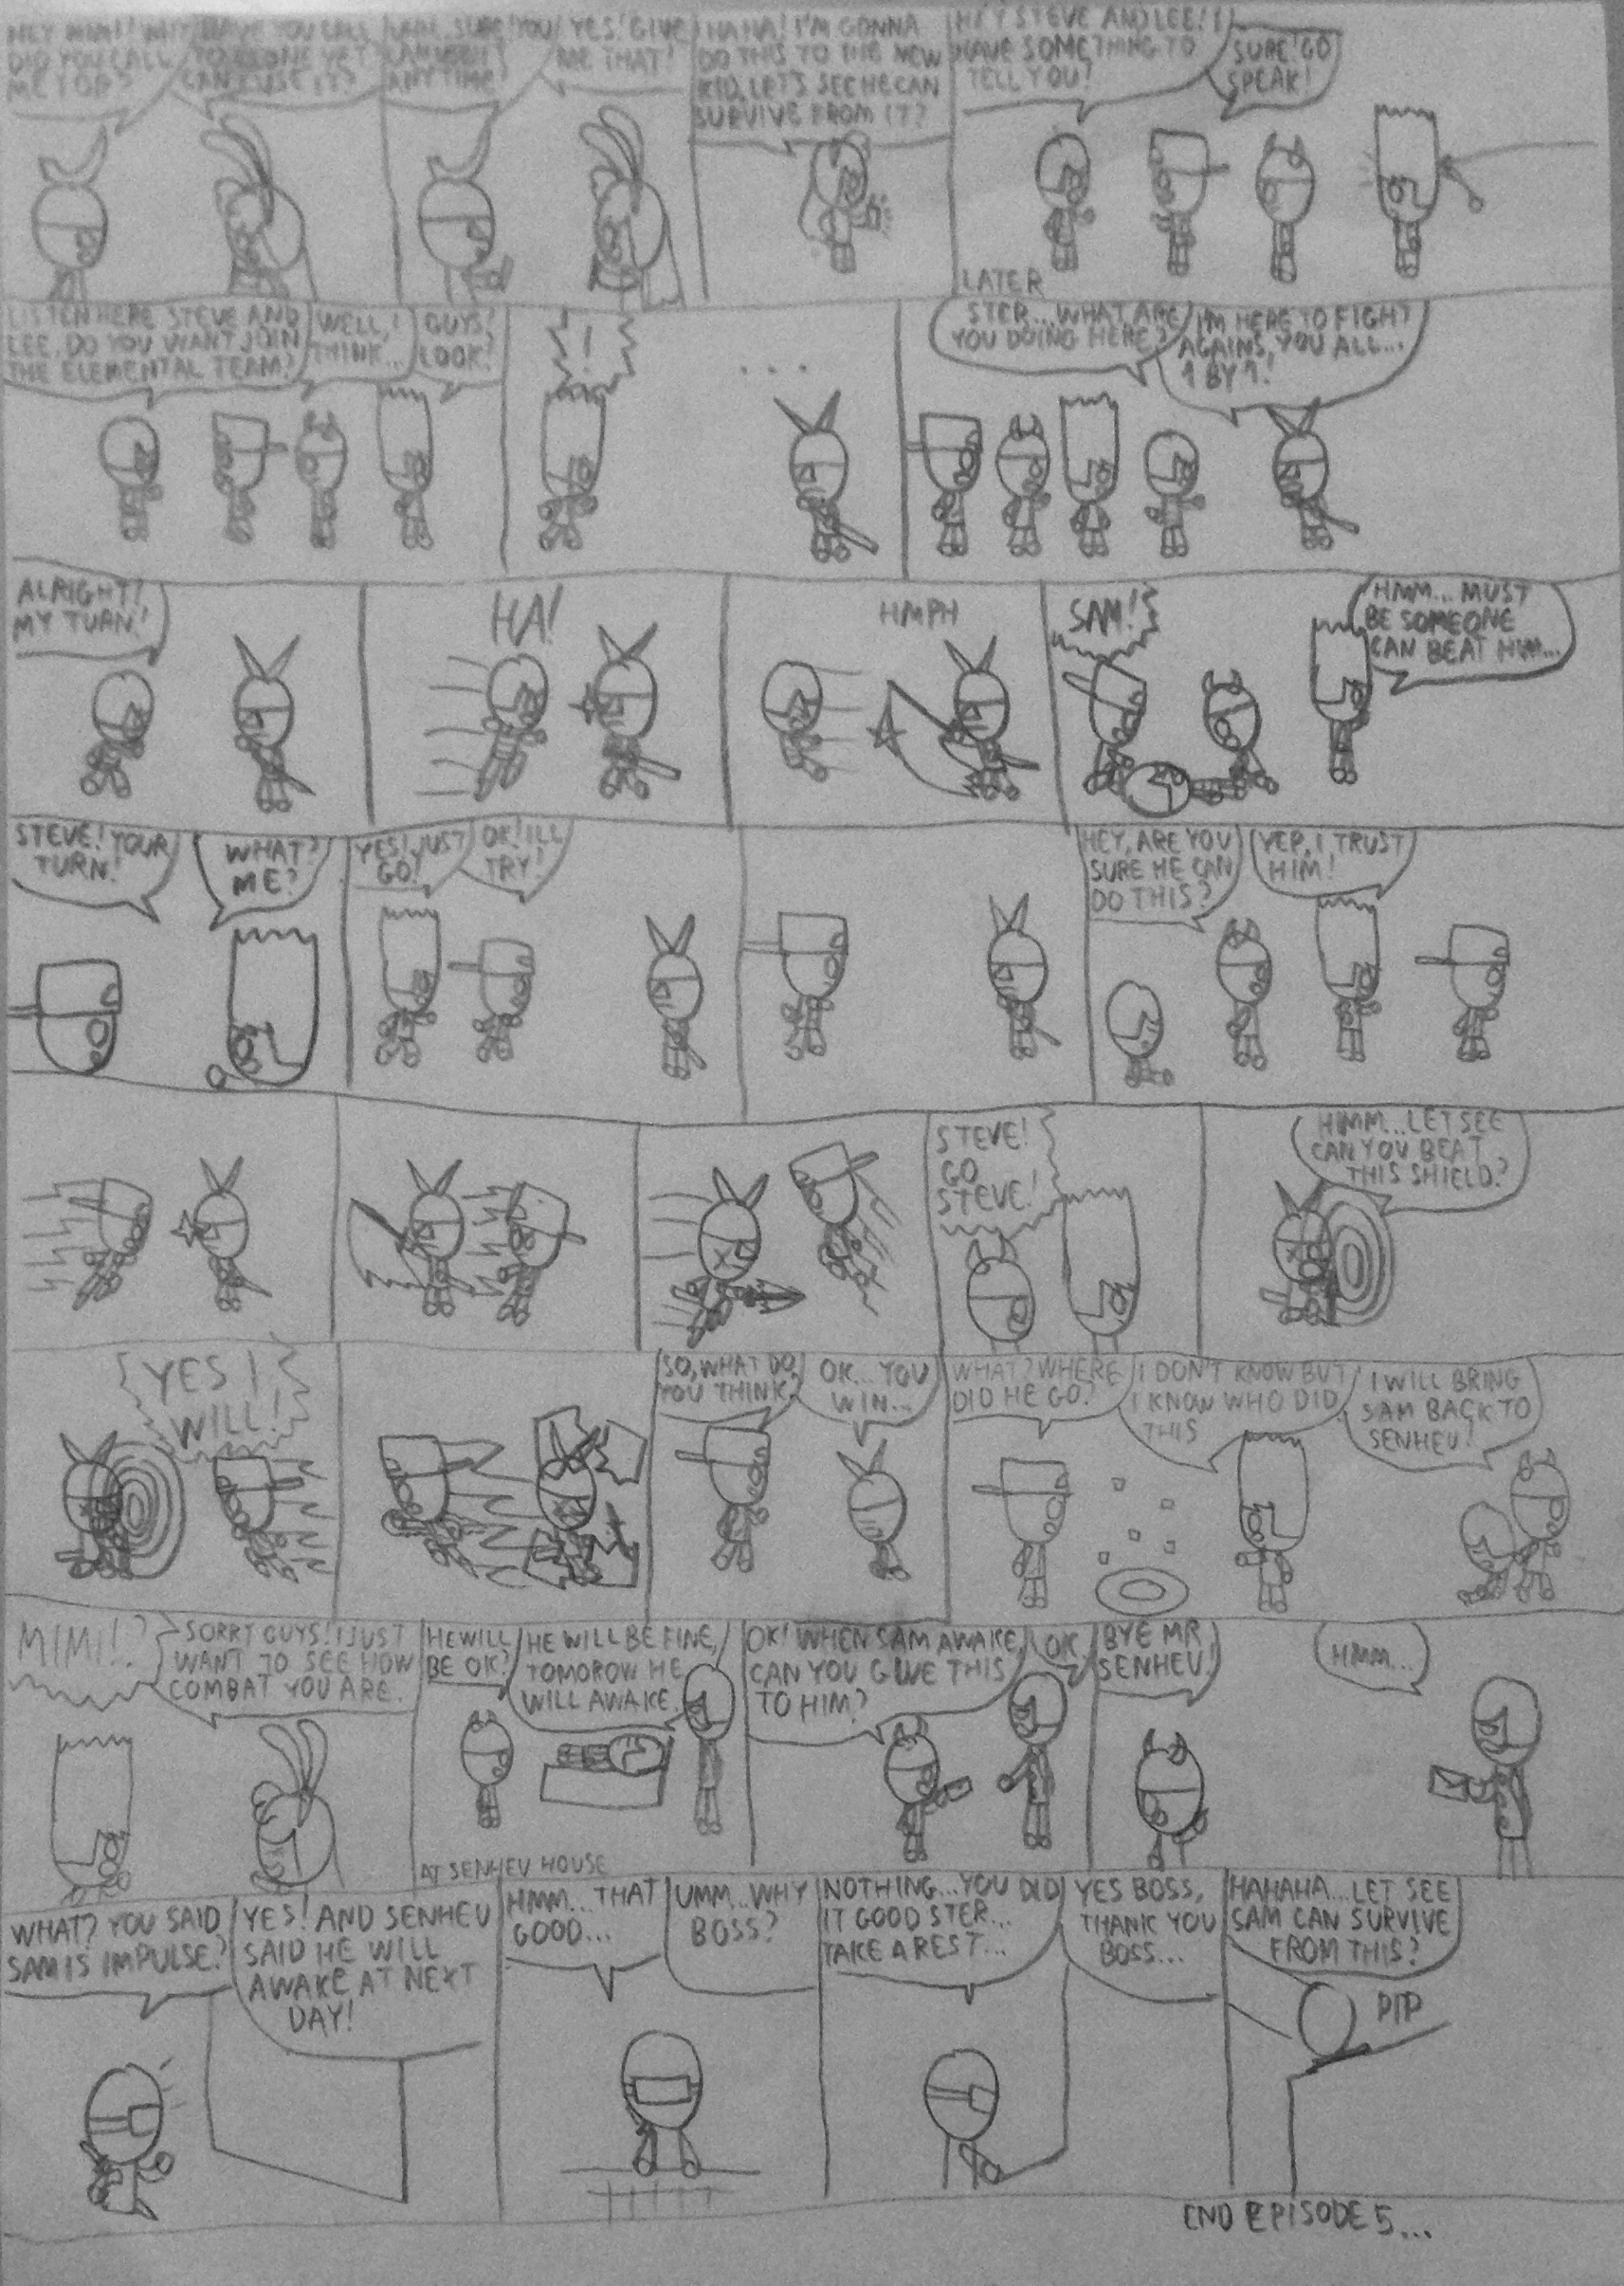 HEY MIMI! WHY
DID YOU CALL
ME FOR?
HAVE YOU CALL
CAN I USE IT?
SURE! YOU
CAN USE IT
ANYTIME!
YES! GIVE
ME THAT!
HAHA! I'M GONNA
DO THIS TO THE NEW
KID, LET'S SEE HE CAN
SURVIVE FROM IT?
HEY STEVE AND LEE! I
HAVE SOMETHING TO
TELL YOU?
SURE! GO
SPEAK!
LATER
LISTEN HERE STEVE AND
LEE, DO YOU WANT JOIN
THE ELEMENTAL TEAM?
WELL, I
THINK...
GUYS!
LOOK!
!
...
STER... WHAT ARE
YOU DOING HERE?
I'M HERE TO FIGHT
AGAINS, YOU ALL...
1 BY 1!
ALRIGHT!
MY TURN!
HA!
HMPH
SAM!
HMM... MUST
BE SOMEONE
CAN BEAT HIM...
STEVE! YOUR
TURN!
WHAT?
ME?
YES! JUST
GO!
OK! ILL
TRY!
HEY, ARE YOU
SURE HE CAN
DO THIS?
YEP, I TRUST
HIM!
STEVE!
GO
STEVE!
HMM... LET SEE
CAN YOU BEAT
THIS SHIELD?
YES I
WILL!
SO, WHAT DO
YOU THINK?
OK... YOU
WIN...
WHAT? WHERE
DID HE GO?
I DON'T KNOW BUT
I KNOW WHO DID
THIS
I WILL BRING
SAM BACK TO
SENHEU!
MIMI!?
SORRY GUYS! I JUST
WANT TO SEE HOW
COMBAT YOU ARE.
HE WILL
BE OK?
HE WILL BE FINE,
TOMOROW HE
WILL AWAKE.
AT SENHEU HOUSE
OK! WHEN SAM AWAKE,
CAN YOU GIVE THIS
TO HIM?
OK
BYE MR
SENHEU!
HMM...
WHAT? YOU SAID
SAM IS IMPULSE?
YES! AND SENHEU
SAID HE WILL
AWAKE AT NEXT
DAY!
HMM... THAT
GOOD...
UMM... WHY
BOSS?
NOTHING... YOU DID
IT GOOD STER...
TAKE A REST...
YES BOSS,
THANK YOU
BOSS...
HAHAHA... LET SEE
SAM CAN SURVIVE
FROM THIS?
PIP
END EPISODE 5...